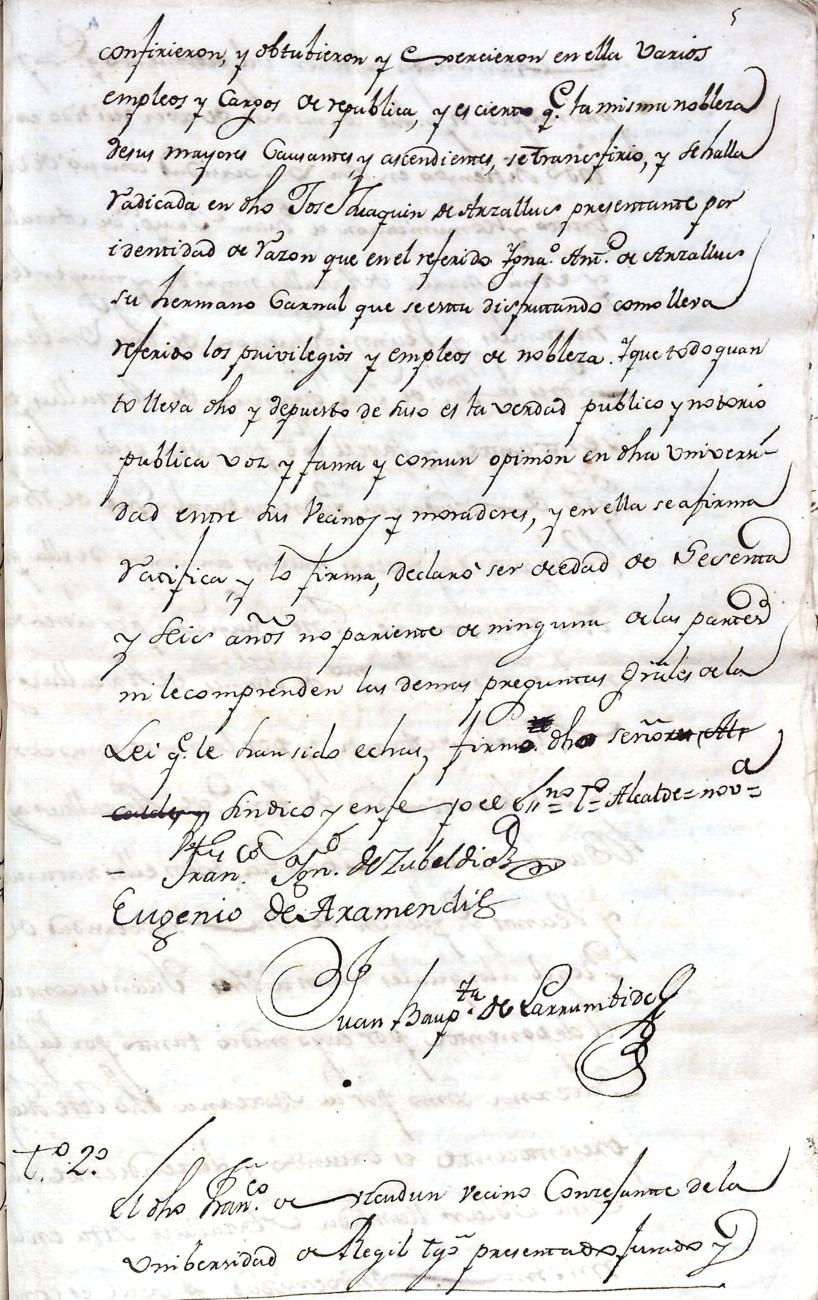 5
confirieron, y obtubieron y exercieron en ella varios
empleos y Cargos de republica, y es cierto q.e la misma nobleza
de sus mayores Causantes, y ascendientes, se transfirio, y se halla
radicada en dho Jose Joaquin de Arzallus presentante por
identidad de razon que en el referido Igna.o Ant.o de Arzallus
su hermano Carnal que se esta disfrutando como lleva
referido los privilegios y empleos de nobleza. Y que todo quan
to lleva dho y depuesto de suso es la verdad publico y notorio
publica voz y fama y comun opinion en dha Universi-
dad entre sus Vecinos y moradores, y en ella se afirma
ratifica, y lo firma, declaró ser de edad de Sesenta
y seis años no pariente de ninguna de las partes
ni le comprenden las demas preguntas grãles de la
Lei q.e le han sido echas, firmo dho señor Al
calde, y Sindico y en fe yo el Ess.no = T.o = Alcalde = no v.a =
Fran.co Ign.o de Zubeldia
Eugenio de Aramendi
Juan Baup.ta de Larrumbide
t.o 2.o
El dho Fran.co de Vzcudun vecino Concejante de la
Unibersidad de Regil tgo presentado jurado y